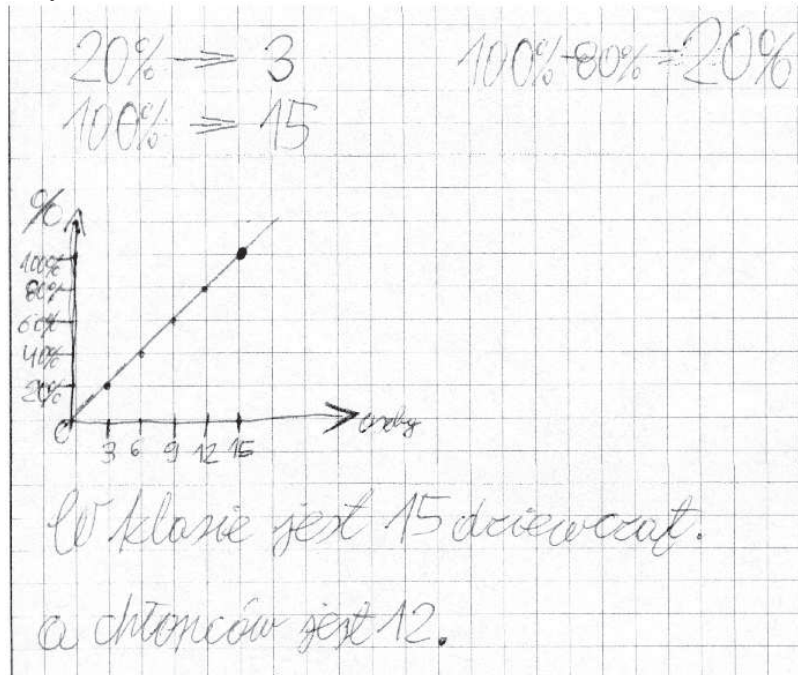 20% ⇒ 3
100% - 80% = 20%
100% ⇒ 15
%
100%
80%
60%
40%
20%
0
3 6 9 12 15
osoby
W klasie jest 15 dziewcząt.
a chłopców jest 12.